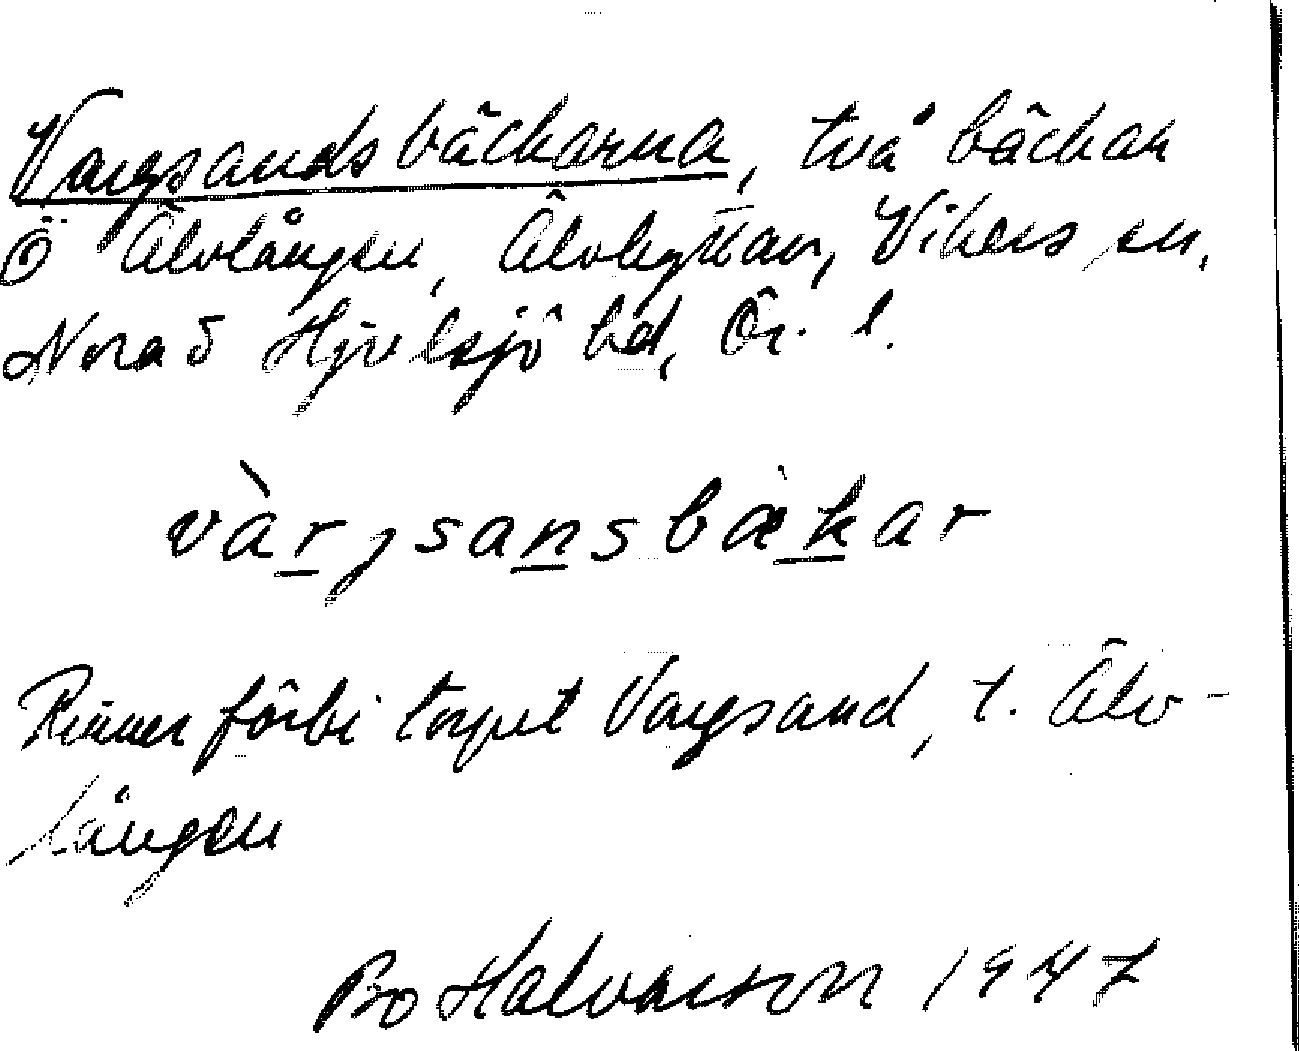 Vargsandsbäckarna, två bäckar
Ö Älvlången, Älvhyttan, Vikers sn,
Nora o Hjulsjö bd, Ör. l.
vàrjsansbækar
Rinner förbi torpet Vargsand, t. Älv-
lången
Bo Halvarson 1947